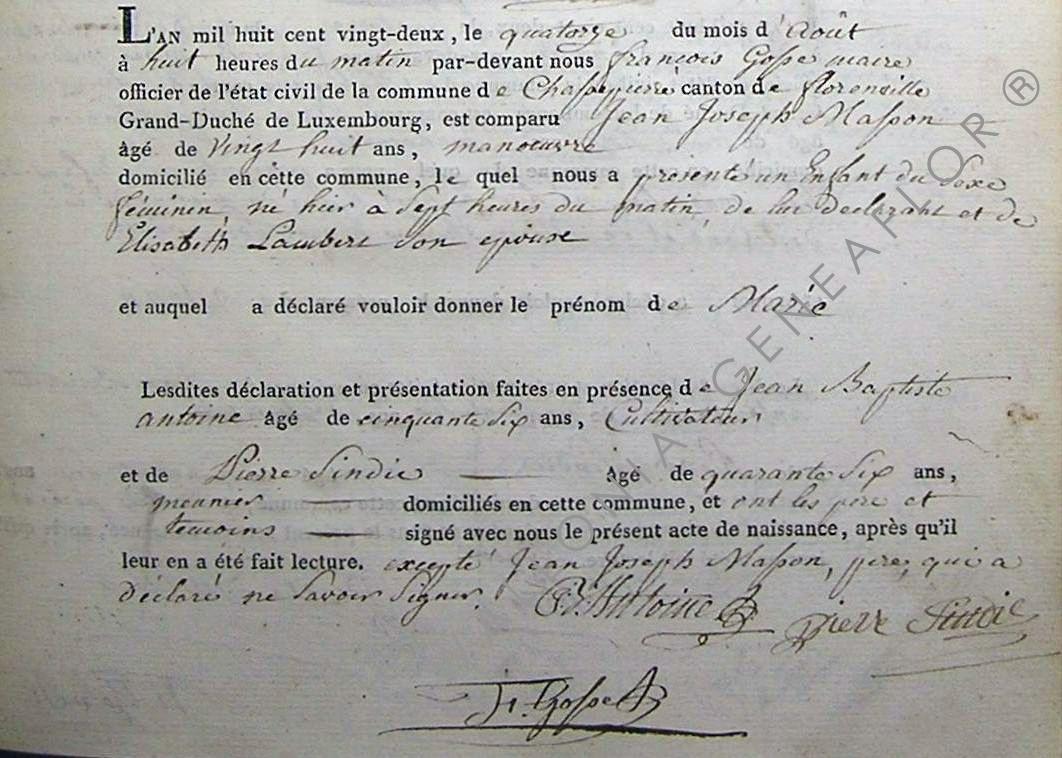 L'AN mil huit cent vingt-deux, le quatorze du mois d'Août
à huit heures du matin par-devant nous françois Gosse maire
officier de l'état civil de la commune de Chassepierre canton de florenville
Grand-Duché de Luxembourg, est comparu Jean Joseph Masson
âgé de Vingt huit ans, manoeuvre
domicilié en cette commune, le quel nous a présenté un Enfant du Séxe
féminin, né hier à Sept heures du matin, de lui declarant et de
Elisabeth Lambert Son epouse
et auquel a déclaré vouloir donner le prénom de Marie
Lesdites déclaration et présentation faites en présence de Jean Baptiste
antoine âgé de cinquante Six ans, Cultivateur
et de Pierre Sindic âgé de quarante Six ans,
meunier domiciliés en cette commune, et ont les père et
témoins signé avec nous le présent acte de naissance, après qu'il
leur en a été fait lecture. excepté Jean Joseph Masson, pere, qui a
déclaré ne Savoir Signer. Antoine Pierre Sindic
F. Gosse
GENEAFLOR ®